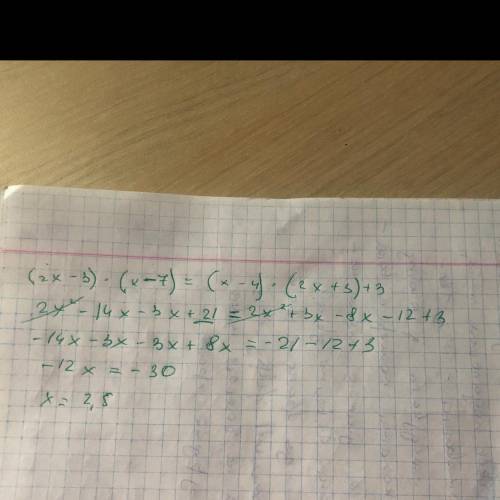 (2x-3)·(x-7)=(x-4)·(2x+3)+3
2x²-14x-3x+21=2x²+3x-8x-12+3
-14x-3x-3x+8x=-21-12+3
-12x=-30
x=2,5